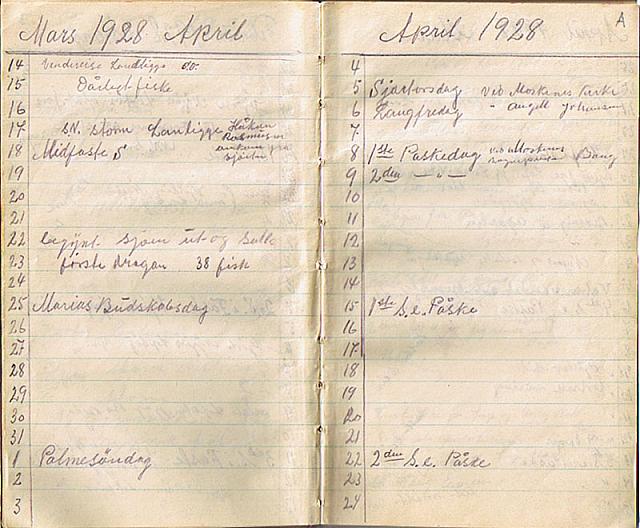 Mars 1928 April
14 Landligge do.
15 Dårligt fiske
16
17 S.V. storm Lanligge Håkon
Rasmussen
18 Midfaste S ankom fra
19
20
21
22 begynt sjøen ut og satte
23 første dragan 38 fisk
24
25 Marias Budskabsdag
26
27
28
29
30
31
1 Palmesöndag
2
3
A
April 1928
4
5 Sjærtorsdag ved Moskenes Kirke
6 Langfredag " angell Johansen
7
8 1ste Paskedag ved Moskenes Bang
9 2den — " —
10
11
12
13
14
15 1ste S. e. Påske
16
17
18
19
20
21
22 2den S. e. Påske
23
24